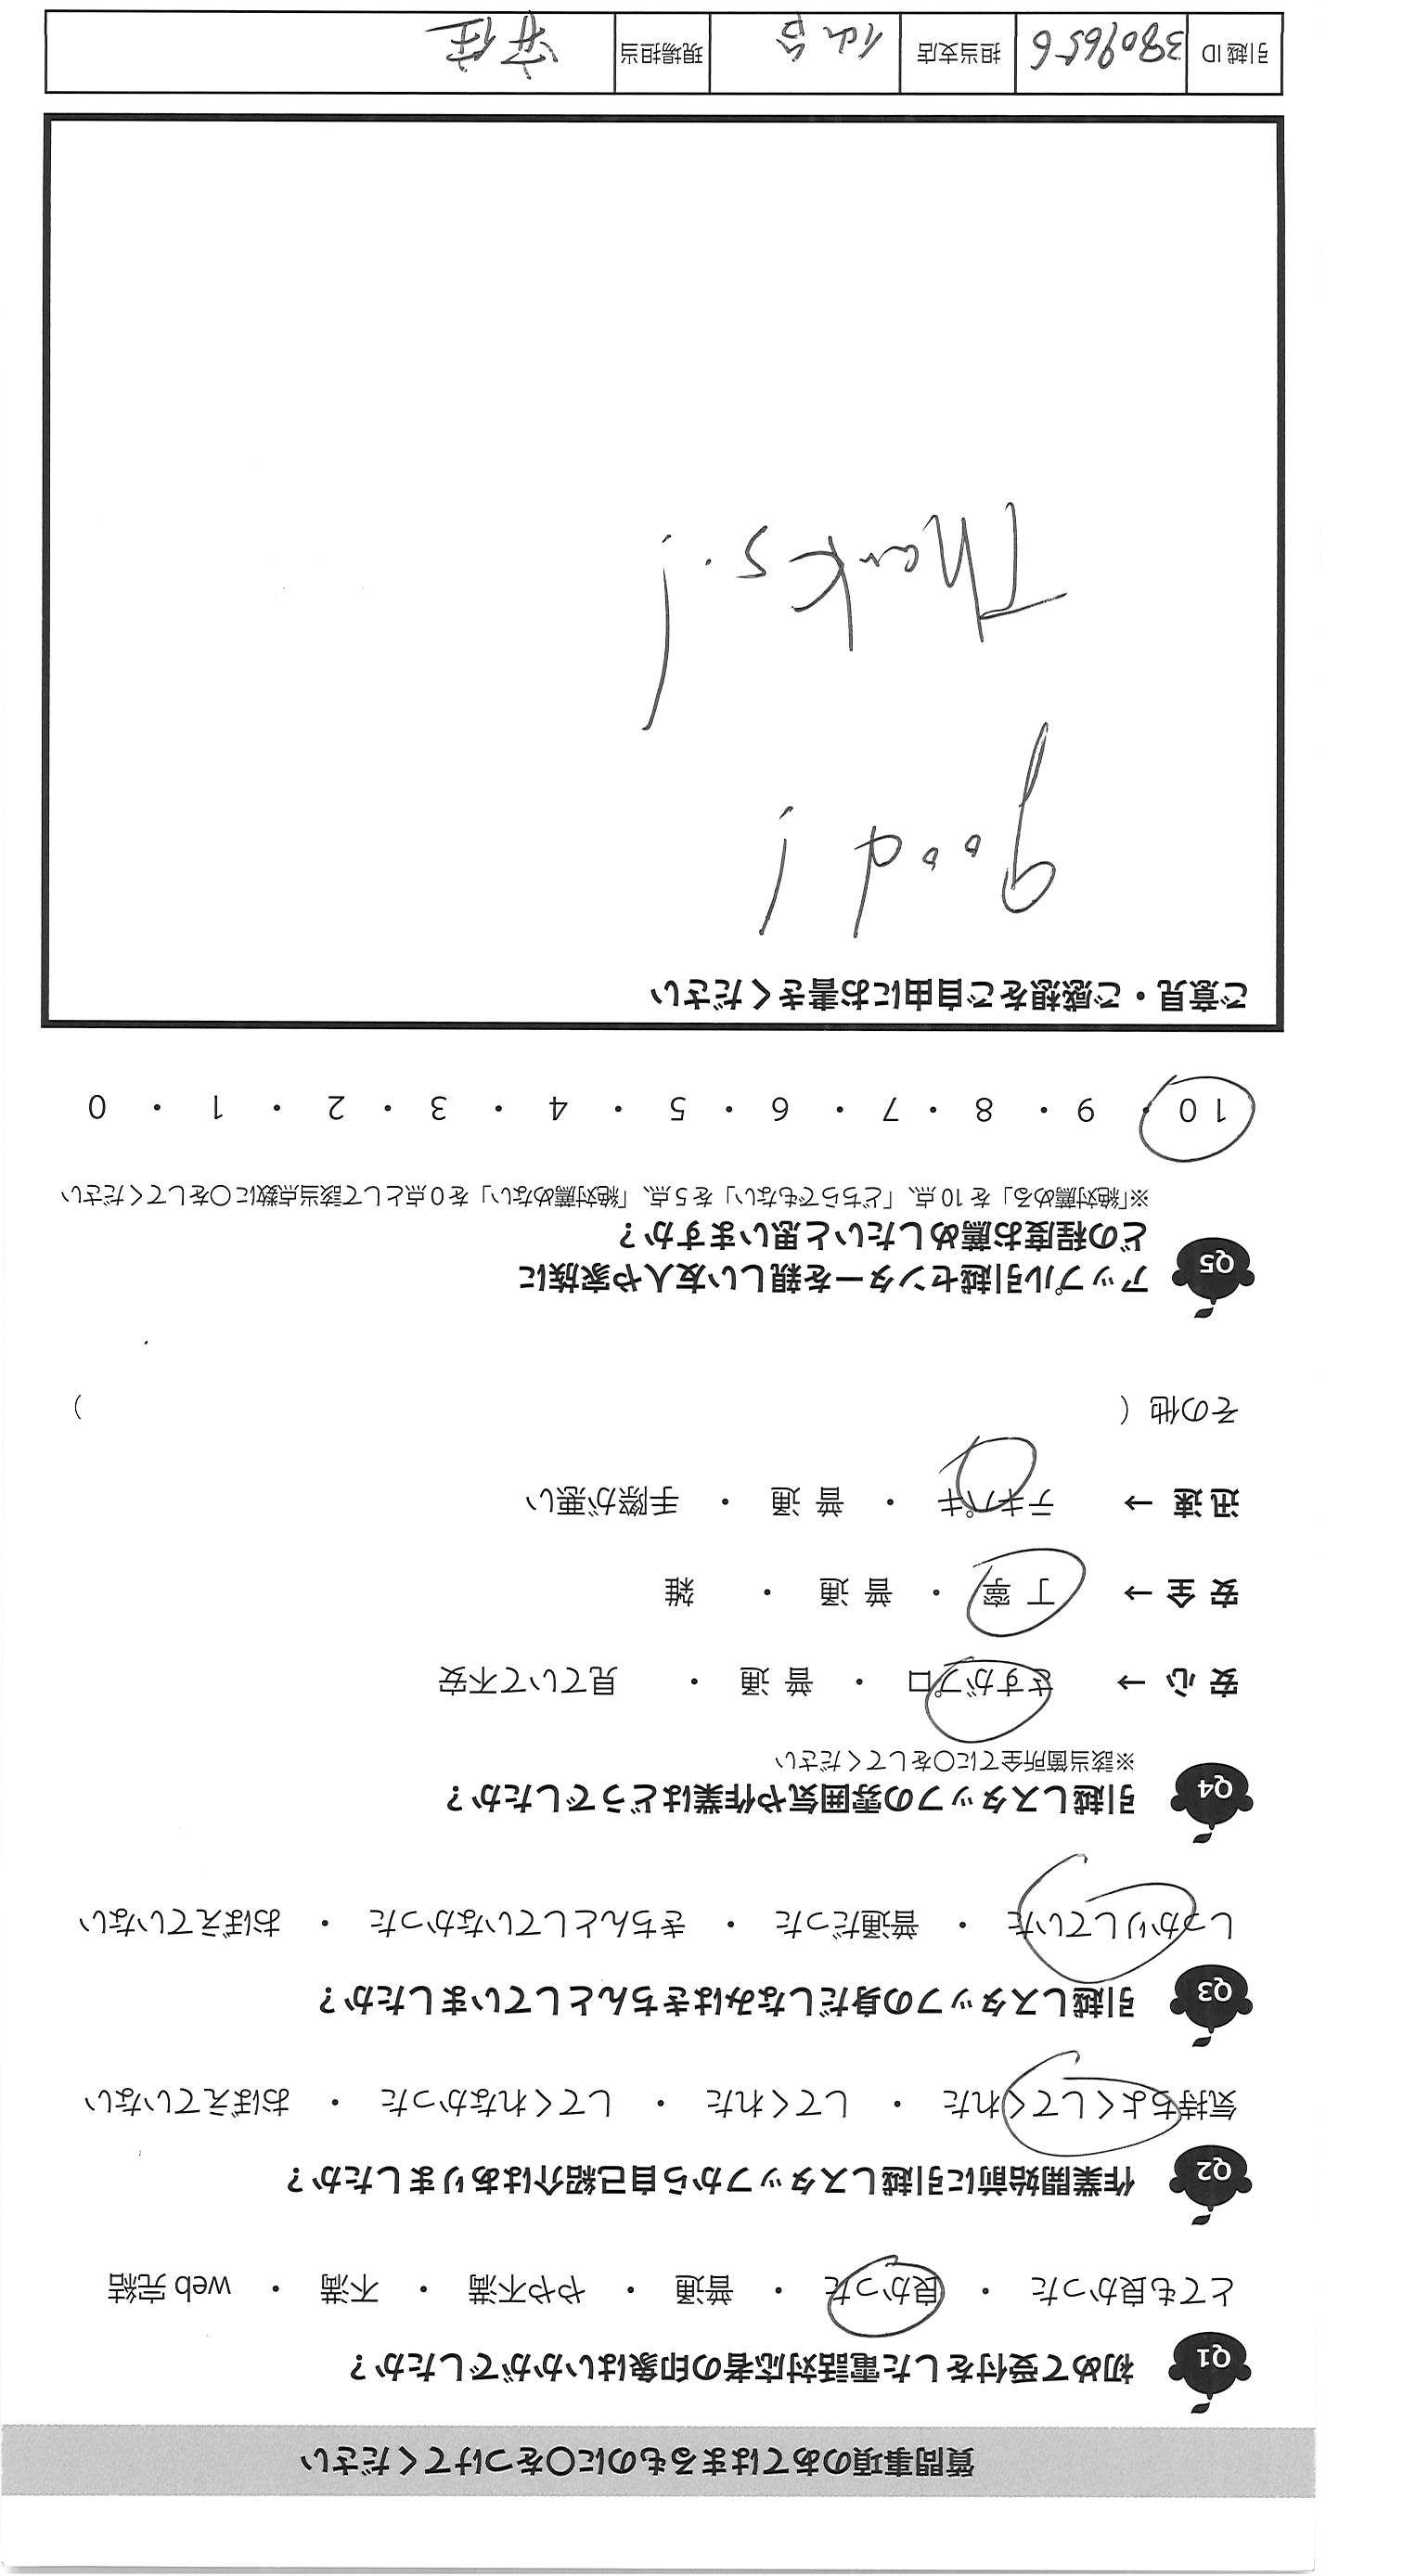 質問事項のあてはまるものに〇をつけてください
Q1 初めて受付をした電話対応者の印象はいかがでしたか？
とても良かった ・ 良かった ・ 普通 ・ やや不満 ・ 不満 ・ web 完結
Q2 作業開始前に引越しスタッフから自己紹介はありましたか？
気持ちよくしてくれた ・ してくれた ・ してくれなかった ・ おぼえていない
Q3 引越しスタッフの身だしなみはきちんとしていましたか？
しっかりしていた ・ 普通だった ・ きちんとしていなかった ・ おぼえていない
Q4 引越しスタッフの雰囲気や作業はどうでしたか？
※該当箇所全てに〇をしてください
安 心 → さすがプロ ・ 普 通 ・ 見ていて不安
安 全 → 丁 寧 ・ 普 通 ・ 雑
迅 速 → テキパキ ・ 普 通 ・ 手際が悪い
その他 （ ）
Q5 アップル引越センターを親しい友人や家族に
どの程度お薦めしたいと思いますか？
※「絶対薦める」を 10 点、「どちらでもない」を 5 点、「絶対薦めない」を 0 点として該当点数に〇をしてください
10 ・ 9 ・ 8 ・ 7 ・ 6 ・ 5 ・ 4 ・ 3 ・ 2 ・ 1 ・ 0
ご意見・ご感想をご自由にお書きください
good!
Thanks.!
引越 ID 3809656 担当支店 仙台 現場担当 安住